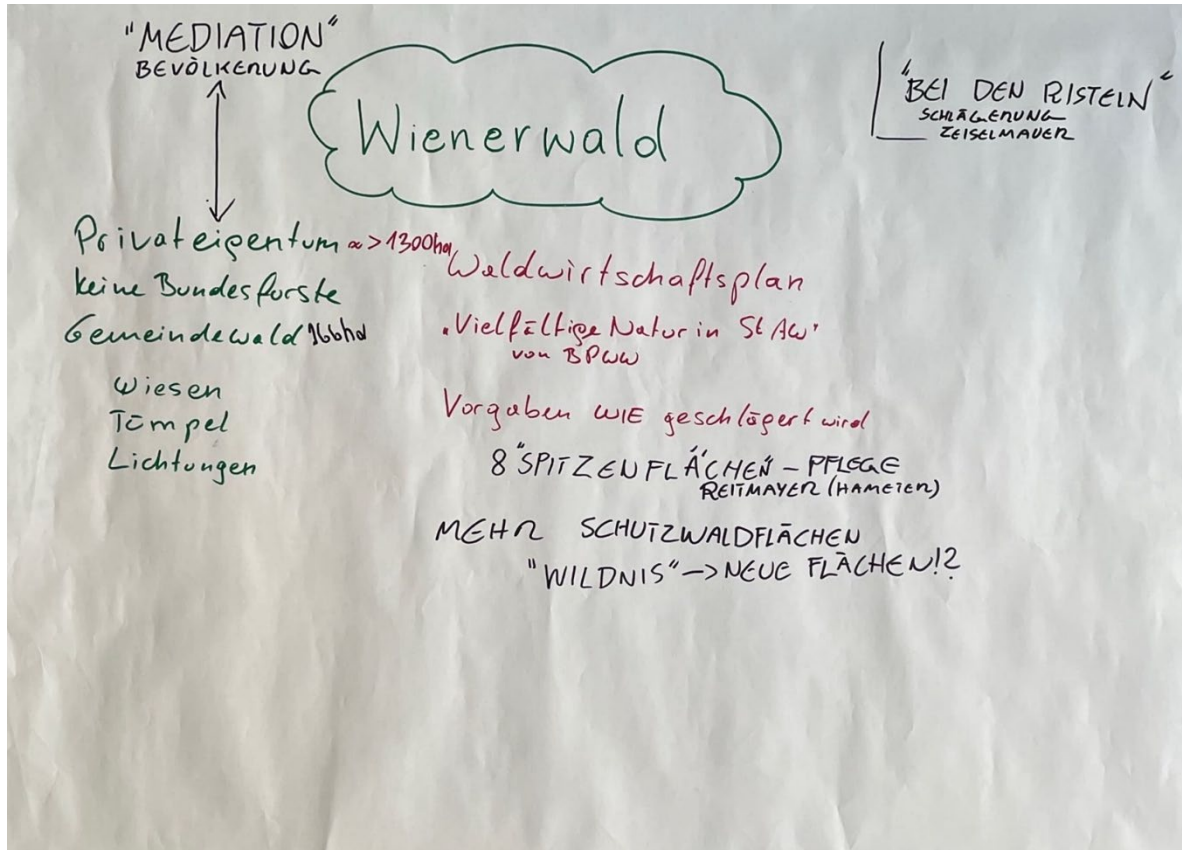 "MEDIATION"
BEVÖLKERUNG
Wienerwald
"BEI DEN RISTELN"
SCHLÄGERUNG
ZEISELMAUER
Privateigentum ≈ > 1300ha
keine Bundesforste
Gemeindewald 166ha
Wiesen
Tümpel
Lichtungen
Waldwirtschaftsplan
"Vielfältige Natur in St AW"
von BPWW
Vorgaben WIE geschlägert wird
8 "SPITZENFLÄCHEN" - PFLEGE
REITMAYER (HAMETER)
MEHR SCHUTZWALDFLÄCHEN
"WILDNIS" -> NEUE FLÄCHEN!?